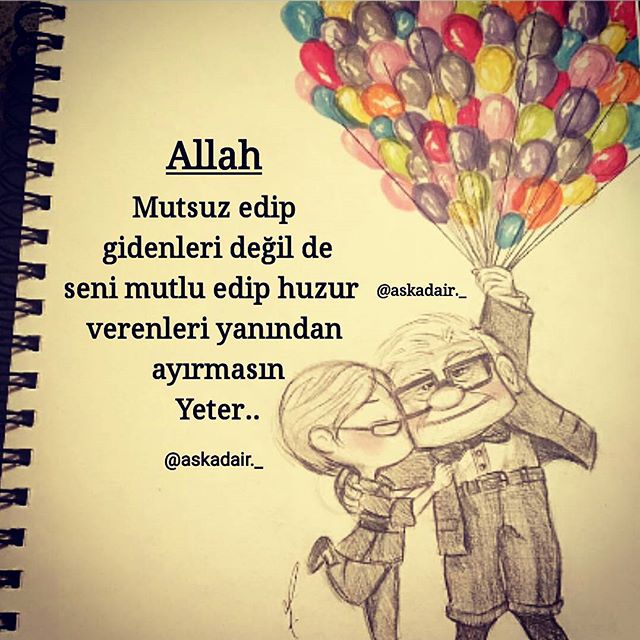 Allah
Mutsuz edip
gidenleri değil de
seni mutlu edip huzur
verenleri yanından
ayırmasın
Yeter..
@askadair._
@askadair._